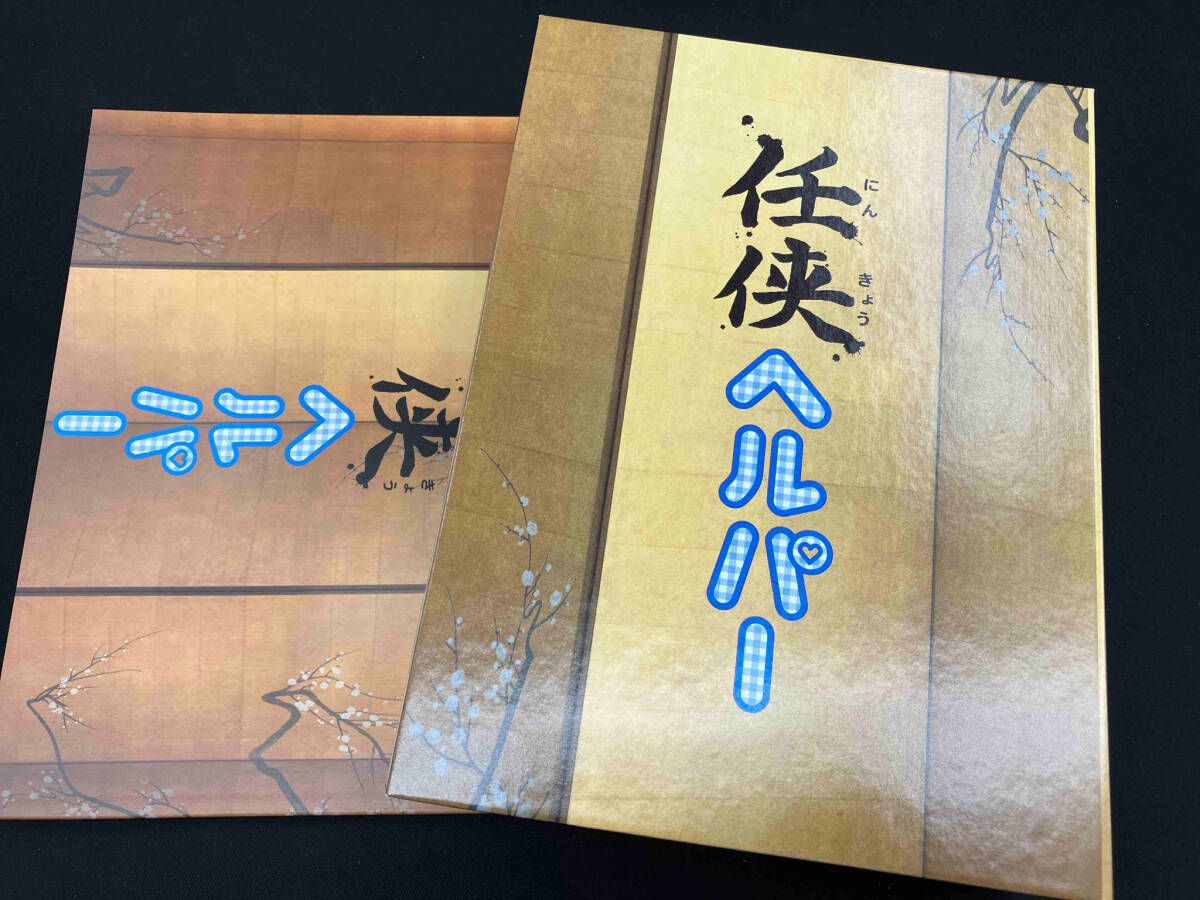 任侠
にんきょう
ヘルパー
侠
きょう
ヘルパー